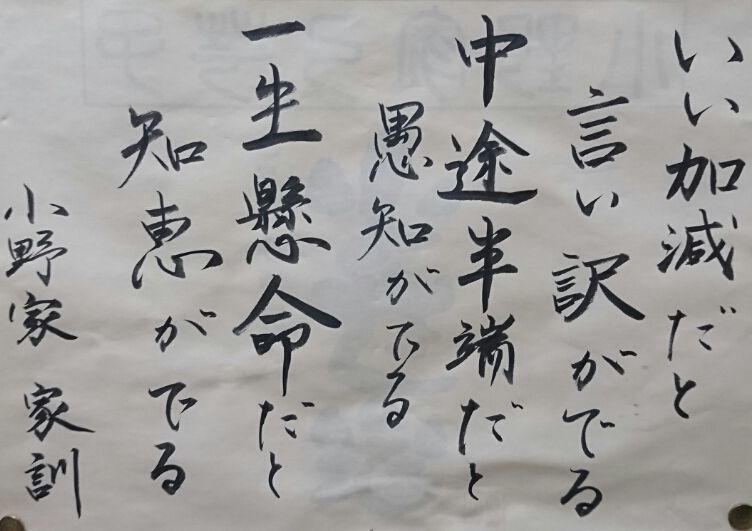 いい加減だと
言い訳がでる
中途半端だと
愚知がでる
一生懸命だと
知恵がでる
小野家 家訓